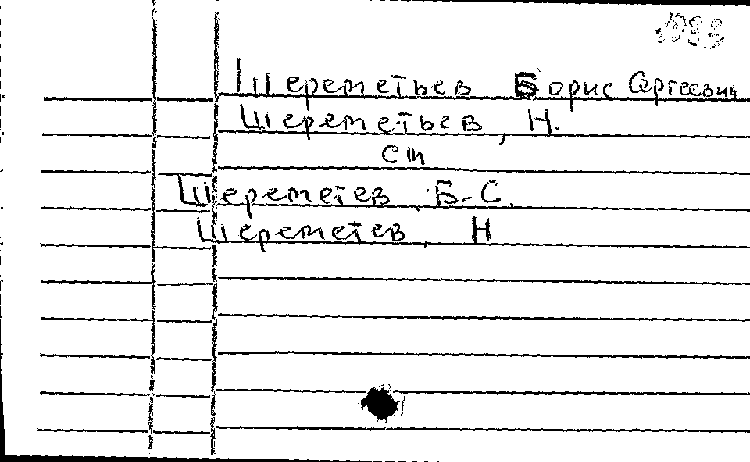 Шереметьев Борис Сергеевич
Шереметьев, Н.
см
Шереметев, Б.С.
Шереметев, Н